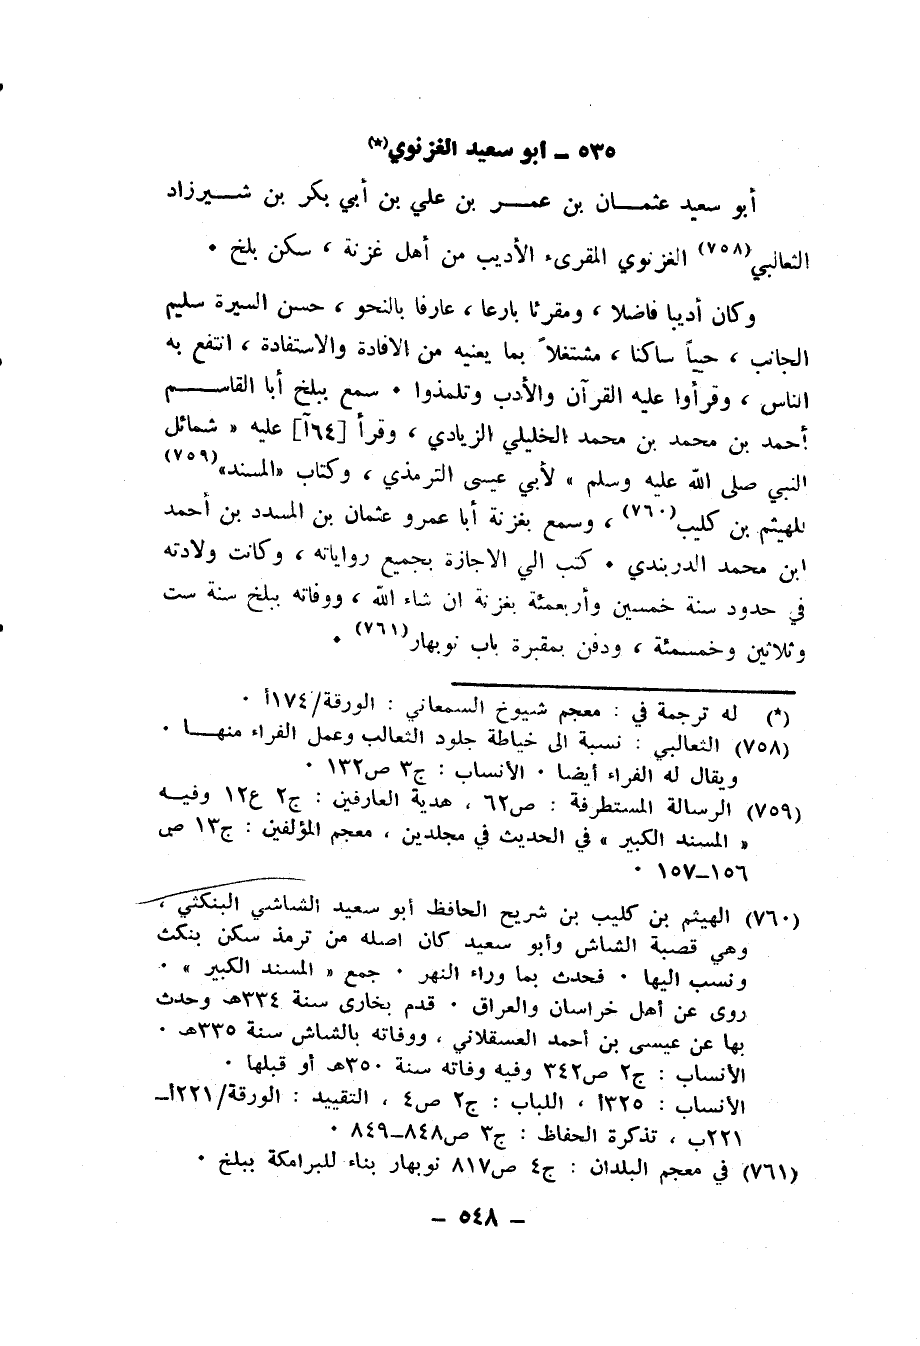 ٥٣٥ ــ ابو سعيد الغزنوي(*)
أبو سعيد عثمـــان بن عمـــر بن علي بن أبي بكر بن شـــيرزاد
الثعالبي(٧٥٨) الغزنوي المقرىء الأديب من أهل غزنة ، سكن بلخ ٠
وكان أديبا فاضلا ، ومقرئا بارعا ، عارفا بالنحو ، حسن السيرة سليم
الجانب ، حيياً ساكنا ، مشتغلاً بما يعنيه من الافادة والاستفادة ، انتفع به
الناس ، وقرأوا عليه القرآن والأدب وتلمذوا ٠ سمع ببلخ أبا القاســـم
أحمد بن محمد بن محمد الخليلي الزيادي ، وقرأ [٦٤آ] عليه « شمائل
النبي صلى الله عليه وسلم » لأبي عيسى الترمذي ، وكتاب «المسند»(٧٥٩)
للهيثم بن كليب(٧٦٠) ، وسمع بغزنة أبا عمرو عثمان بن المسدد بن أحمد
ابن محمد الدربندي ٠ كتب الي الاجازة بجميع رواياته ، وكانت ولادته
في حدود سنة خمسين وأربعمئة بغزنة ان شاء الله ، ووفاته ببلخ سنة ست
وثلاثين وخمسمئة ، ودفن بمقبرة باب نوبهار(٧٦١) ٠
(*) له ترجمة في : معجم شيوخ السمعاني : الورقة/١٧٤أ ٠
(٧٥٨) الثعالبي : نسبة الى خياطة جلود الثعالب وعمل الفراء منهـــا ٠
ويقال له الفراء أيضا ٠ الأنساب : ج٣ ص١٣٢ ٠
(٧٥٩) الرسالة المستطرفة : ص٦٢ ، هدية العارفين : ج٢ ع١٢ وفيـــه
« المسند الكبير » في الحديث في مجلدين ، معجم المؤلفين : ج١٣ ص
١٥٦ــ١٥٧ ٠
(٧٦٠) الهيثم بن كليب بن شريح الحافظ أبو سعيد الشاشي البنكثي ،
وهي قصبة الشاش وأبو سعيد كان اصله من ترمذ سكن بنكث
ونسب اليها ٠ فحدث بما وراء النهر ٠ جمع « المسند الكبير » ٠
روى عن أهل خراسان والعراق ٠ قدم بخارى سنة ٣٣٤هـ وحدث
بها عن عيسى بن أحمد العسقلاني ، ووفاته بالشاش سنة ٣٣٥هـ ٠
الأنساب : ج٢ ص٣٤٢ وفيه وفاته سنة ٣٥٠هـ أو قبلها ٠
الأنساب : ٣٢٥أ ، اللباب : ج٢ ص٤ ، التقييد : الورقة/٢٢١أــ
٢٢١ب ، تذكرة الحفاظ : ج٣ ص٨٤٨ــ٨٤٩ ٠
(٧٦١) في معجم البلدان : ج٤ ص٨١٧ نوبهار بناء للبرامكة ببلخ ٠
ــ ٥٤٨ ــ